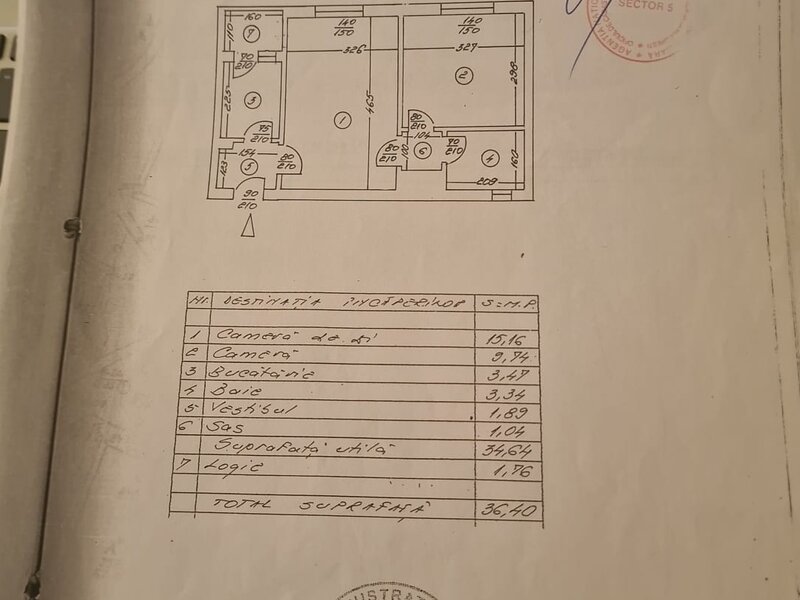 SECTOR 5
160
110
7
70
210
225
3
75
210
154
123
5
80
210
90
210
140
150
326
465
1
80
210
140
150
327
298
2
80
210
104
100
6
70
210
4
160
208
Nr. DESTINAȚIA ÎNCĂPERILOR S=M.P.
1 Cameră de zi 15,16
2 Cameră 9,74
3 Bucătărie 3,47
4 Baie 3,34
5 Vestibul 1,89
6 Sas 1,04
Suprafață utilă 34,64
7 Logie 1,76
TOTAL SUPRAFAȚĂ 36,40